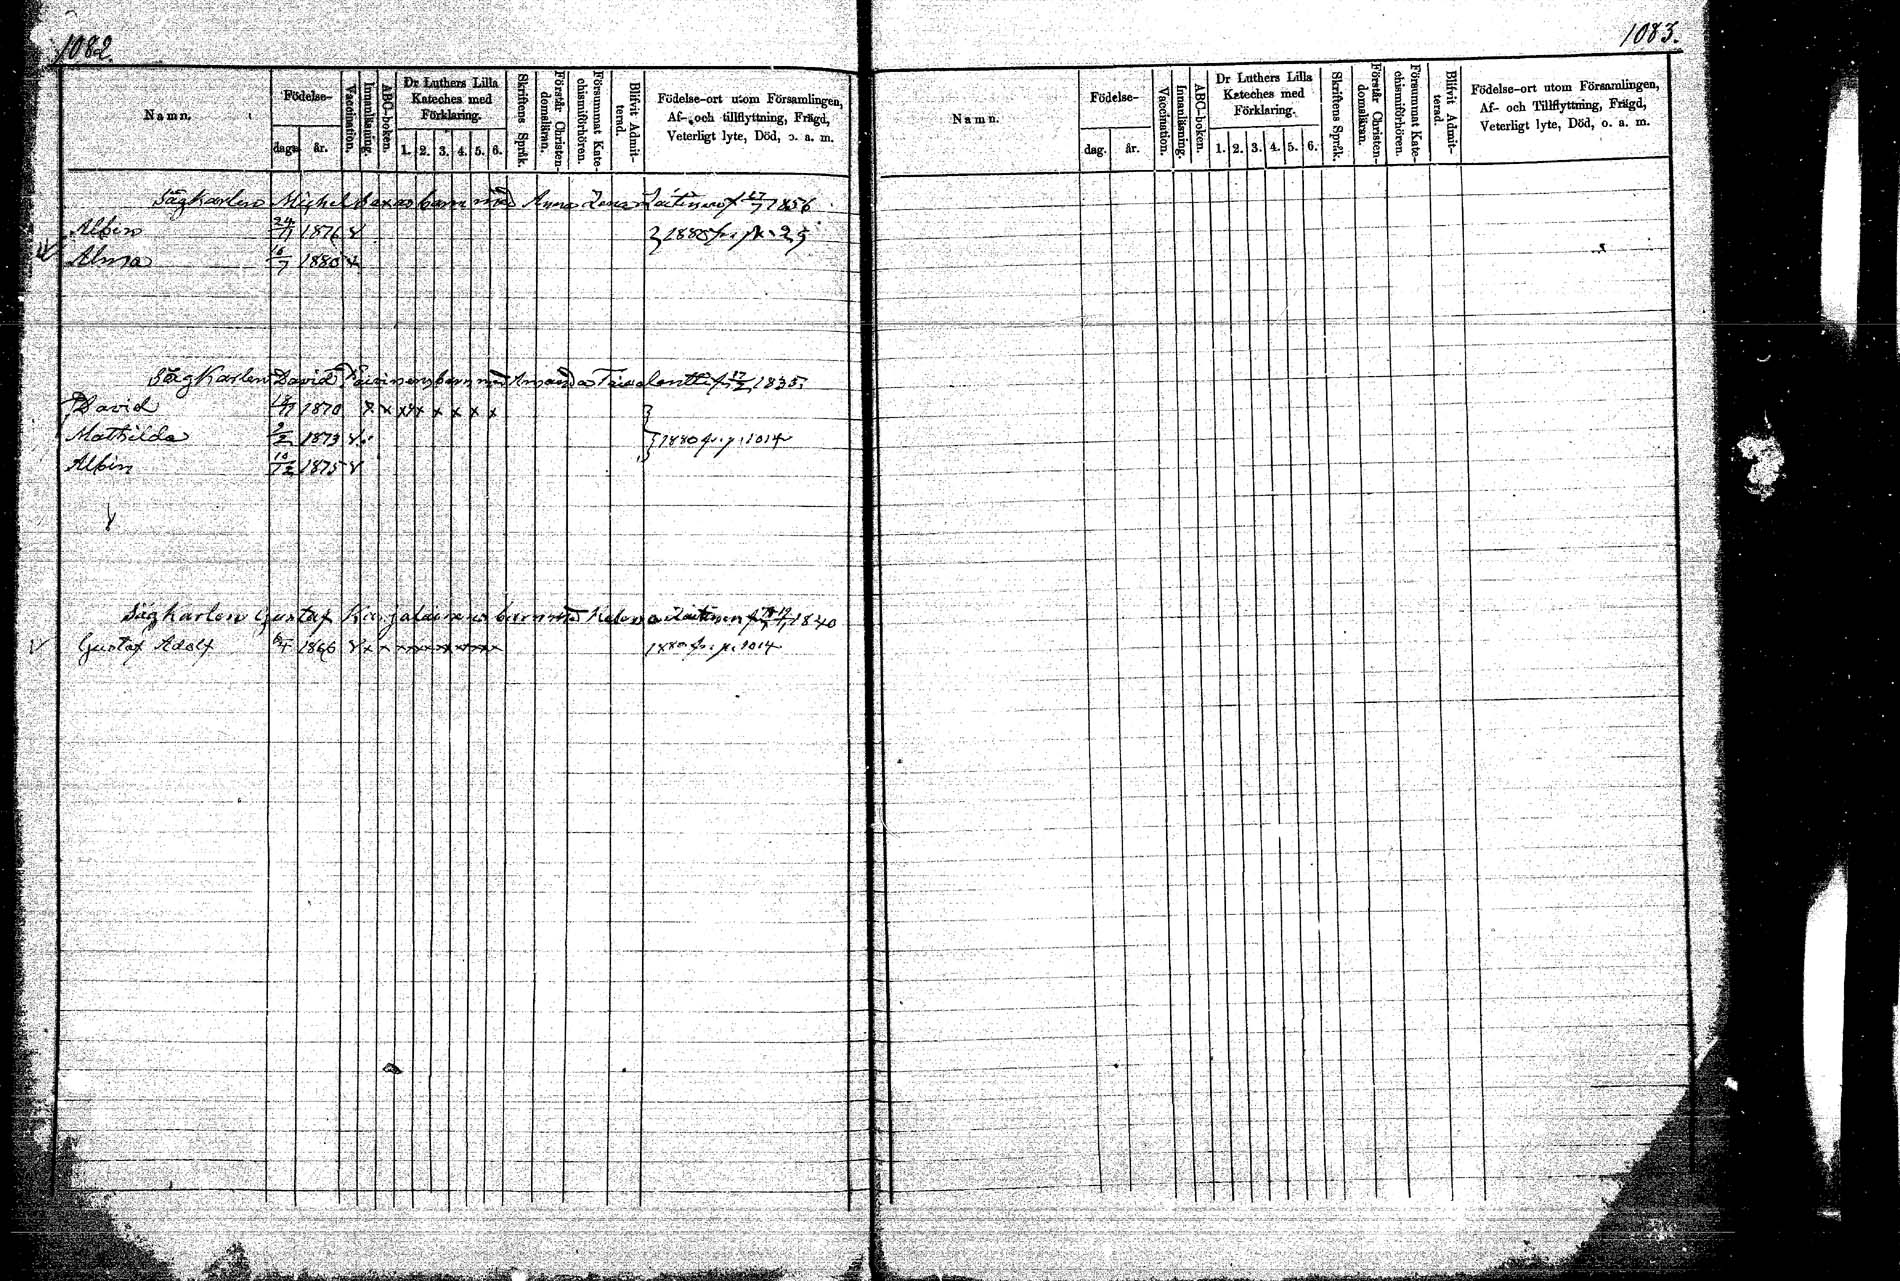 1082.
1083.
Namn.
Födelse-
dag.
år.
Vaccination.
Innanläsning.
ABC-boken.
Dr Luthers Lilla
Kateches med
Förklaring.
1. 2. 3. 4. 5. 6.
Skriftens Språk.
Förstår Christen-
domsläran.
Försummat Kate-
chismiförhören.
Blifvit Admit-
terad.
Födelse-ort utom Församlingen,
Af- och tillflyttning, Frägd,
Veterligt lyte, Död, o. a. m.
Sågkarlen Michel barn med Anna Lena Laitinen f. 1856
Albin 24/11 1876 v 1880 fr. p. 25
Alma 16/7 1880 x
Sågkarlen David barn med Amanda f. 17/2 1835
David 1870 x x x x x x x x
Mathilda 2/2 1873 v 1880 fr. p. 1014
Albin 10/12 1875 v
Sågkarlen Gustaf Karjalainens barn med Helena Laitinen f. 1840
Gustaf Adolf 1866 v x x x x x x x x 1880 fr. p. 1014
Namn.
Födelse-
dag.
år.
Vaccination.
Innanläsning.
ABC-boken.
Dr Luthers Lilla
Kateches med
Förklaring.
1. 2. 3. 4. 5. 6.
Skriftens Språk.
Förstår Christen-
domsläran.
Försummat Kate-
chismiförhören.
Blifvit Admit-
terad.
Födelse-ort utom Församlingen,
Af- och Tillflyttning, Frägd,
Veterligt lyte, Död, o. a. m.